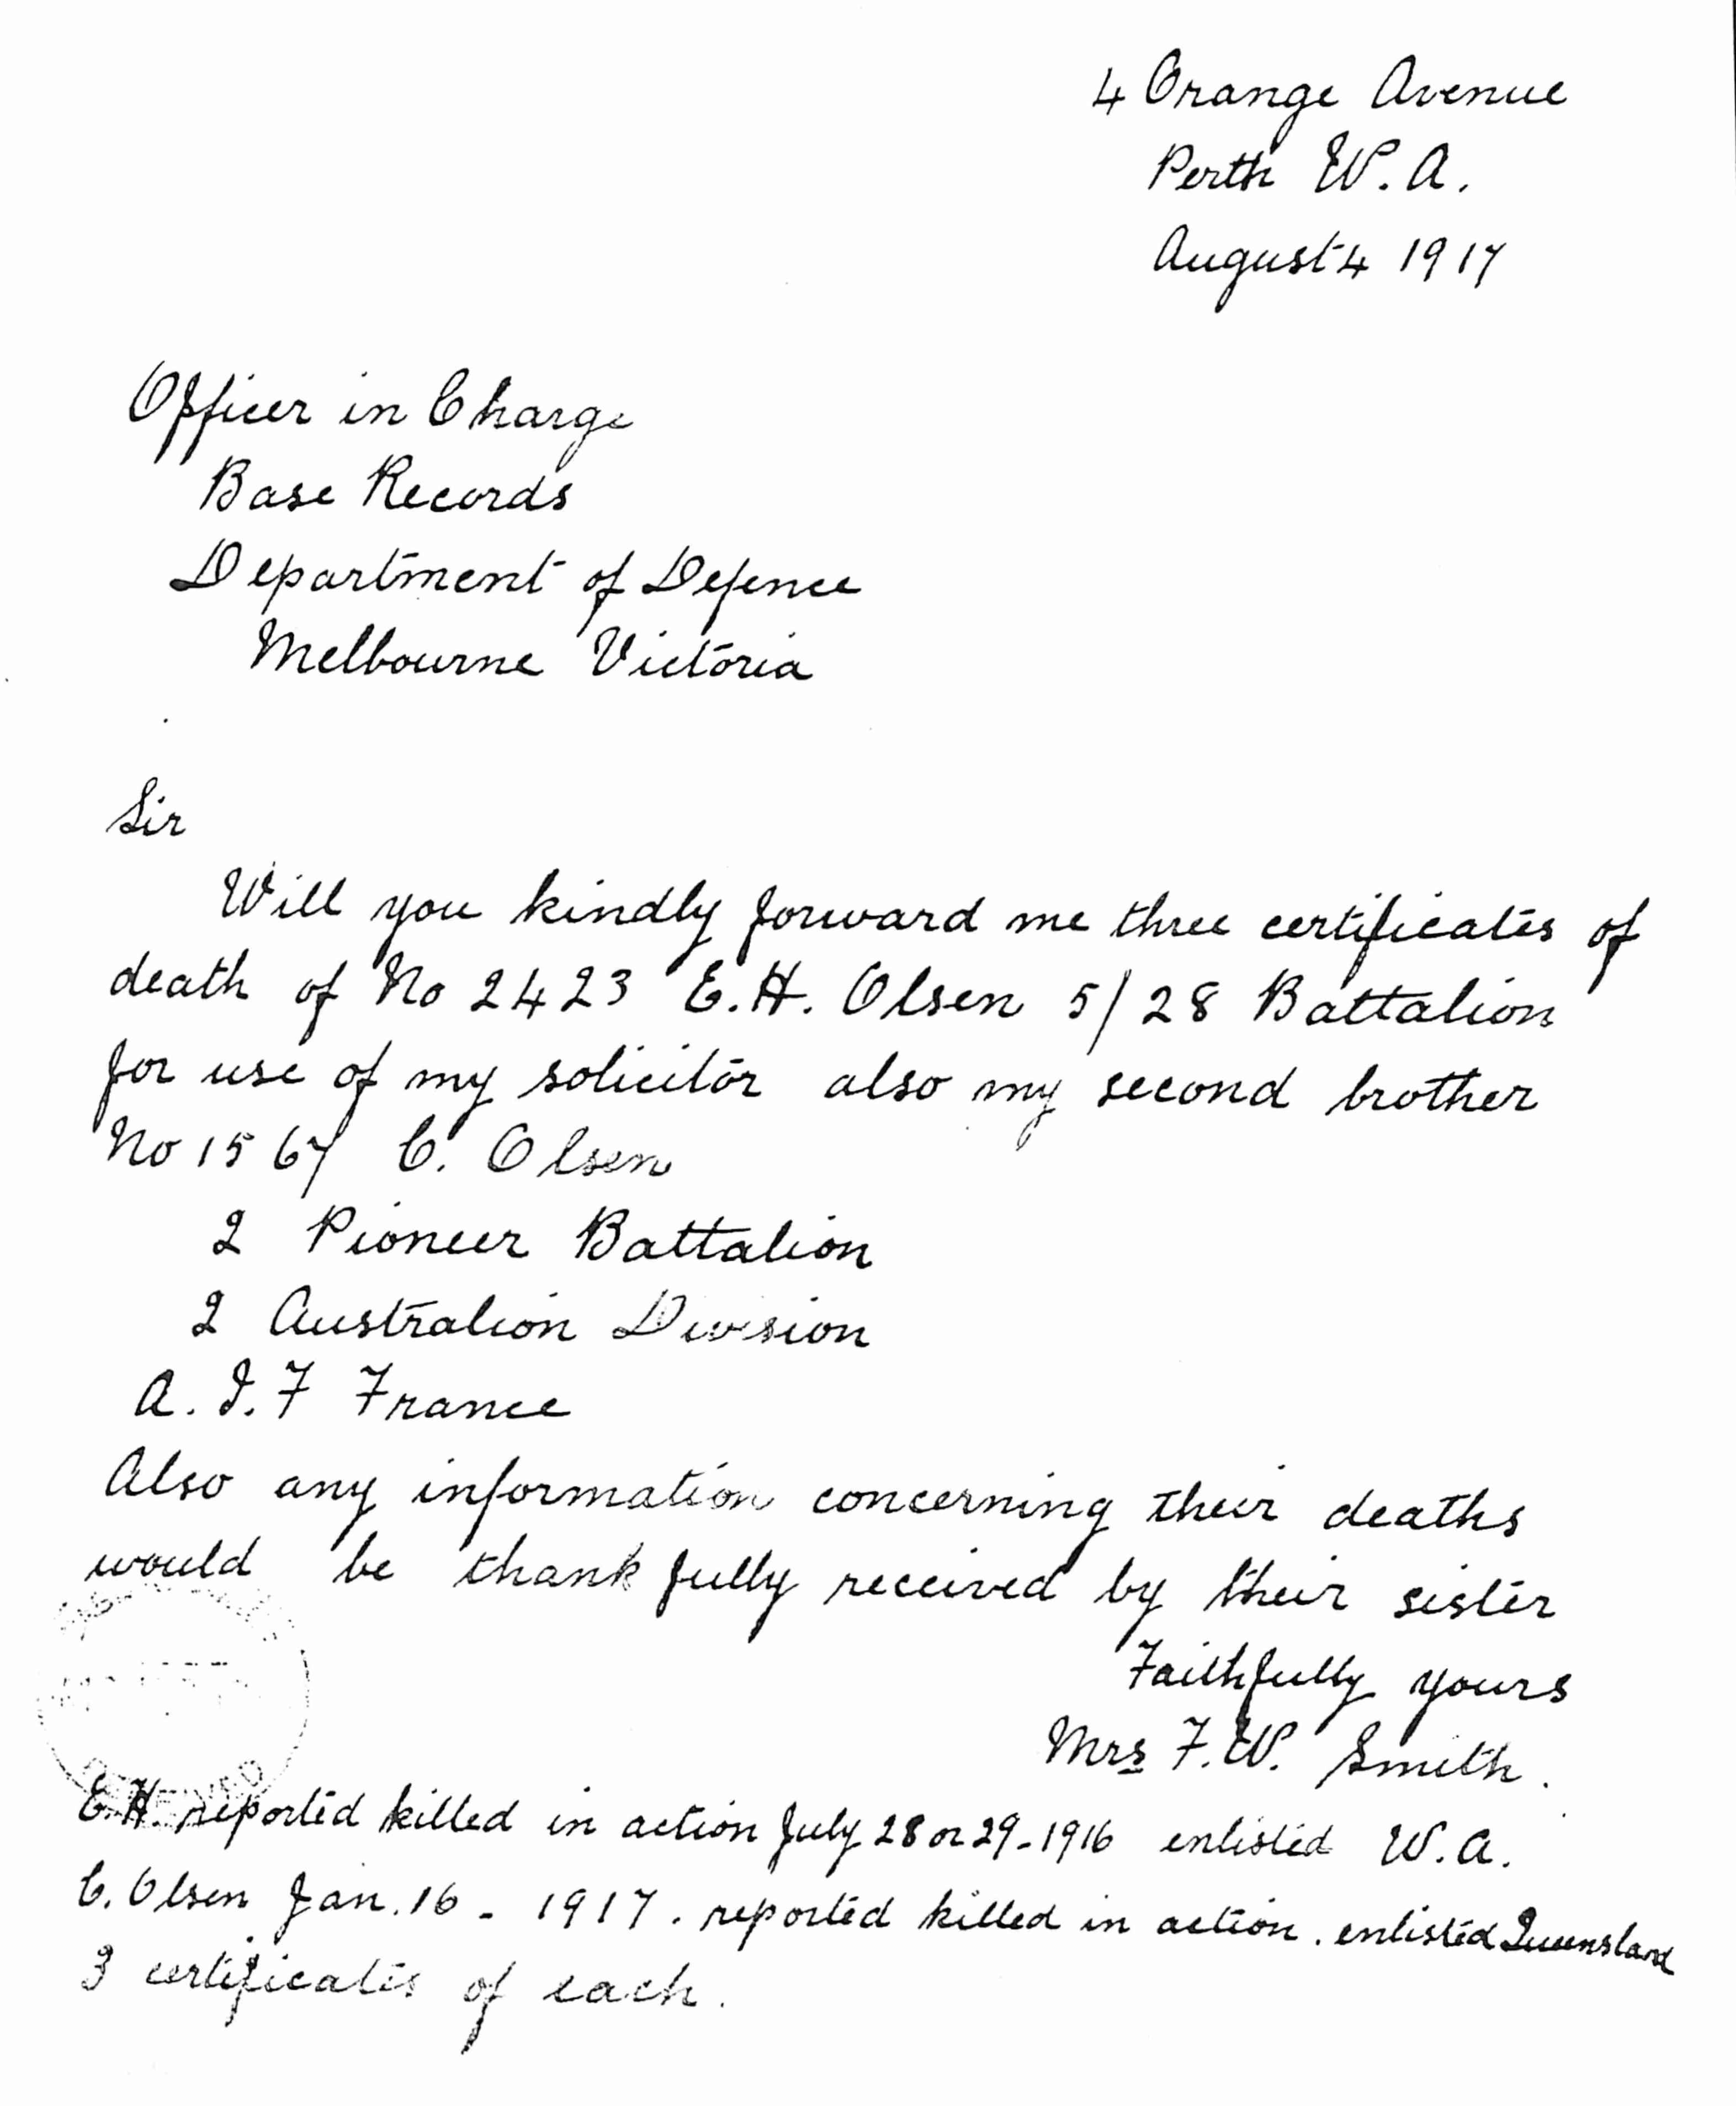 4 Orange Avenue
Perth W.A.
August 4 1917
Officer in Charge
Base Records
Department of Defence
Melbourne Victoria
Sir
Will you kindly forward me three certificates of
death of No 2423 E.H. Olsen 5/28 Battalion
for use of my solicitor also my second brother
No 1567 C. Olsen
2 Pioneer Battalion
2 Australion Division
A.I.F France
Also any information concerning their deaths
would be thankfully received by their sister
Faithfully yours
Mrs F.W. Smith.
E.H. reported killed in action July 28 or 29-1916 enlisted W.A.
C. Olsen Jan. 16 - 1917. reported killed in action. enlisted Queensland
3 certificates of each.